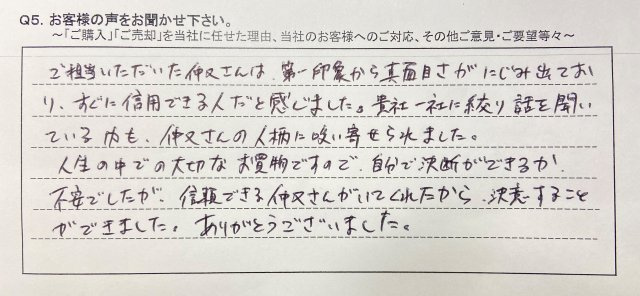 Q5. お客様の声をお聞かせ下さい。
～「ご購入」「ご売却」を当社に任せた理由、当社のお客様へのご対応、その他ご意見・ご要望等々～
ご担当いただいた仲又さんは、第一印象から真面目さがにじみ出てお
り、すぐに信用できる人だと感じました。貴社一社に絞り話を聞い
ている内も、仲又さんの人柄に吸い寄せられました。
人生の中での大切なお買物ですので、自分で決断ができるか
不安でしたが、信頼できる仲又さんがいてくれたから、決意すること
ができました。ありがとうございました。